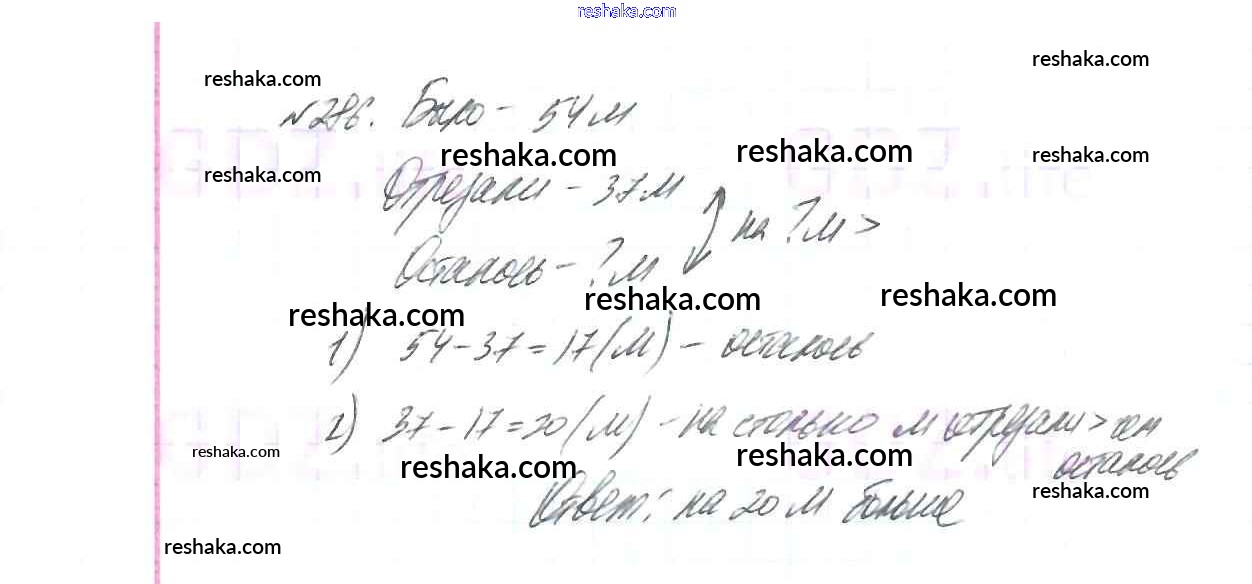 reshaka.com
reshaka.com
reshaka.com
№286. Было - 54 м
reshaka.com
reshaka.com
reshaka.com
reshaka.com
Отрезали - 37 м
на ? м >
Осталось - ? м
reshaka.com
reshaka.com
reshaka.com
1) 54 - 37 = 17 (м) - осталось
2) 37 - 17 = 20 (м) - на столько м отрезали > чем
осталось
reshaka.com
reshaka.com
reshaka.com
reshaka.com
Ответ: на 20 м больше
reshaka.com